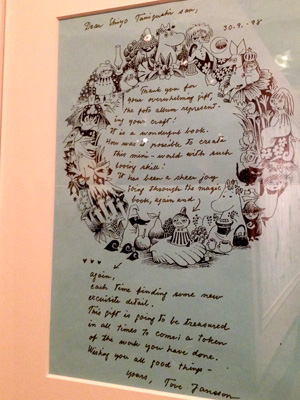 Dear Shiyo Taniguchi san,
20.9.-98
Thank you for
your overwhelming gift,
the fat album represent-
ing your craft!
It is a wonderful book.
How was it possible to create
this mini-world with such
loving skill!
It has been a sheer joy
going through the magic
book, again and
again,
each time finding some new
exquisite detail.
This gift is going to be treasured
in all times to come; a token
of the work you have done.
Wishing you all good things -
yours, Tove Jansson